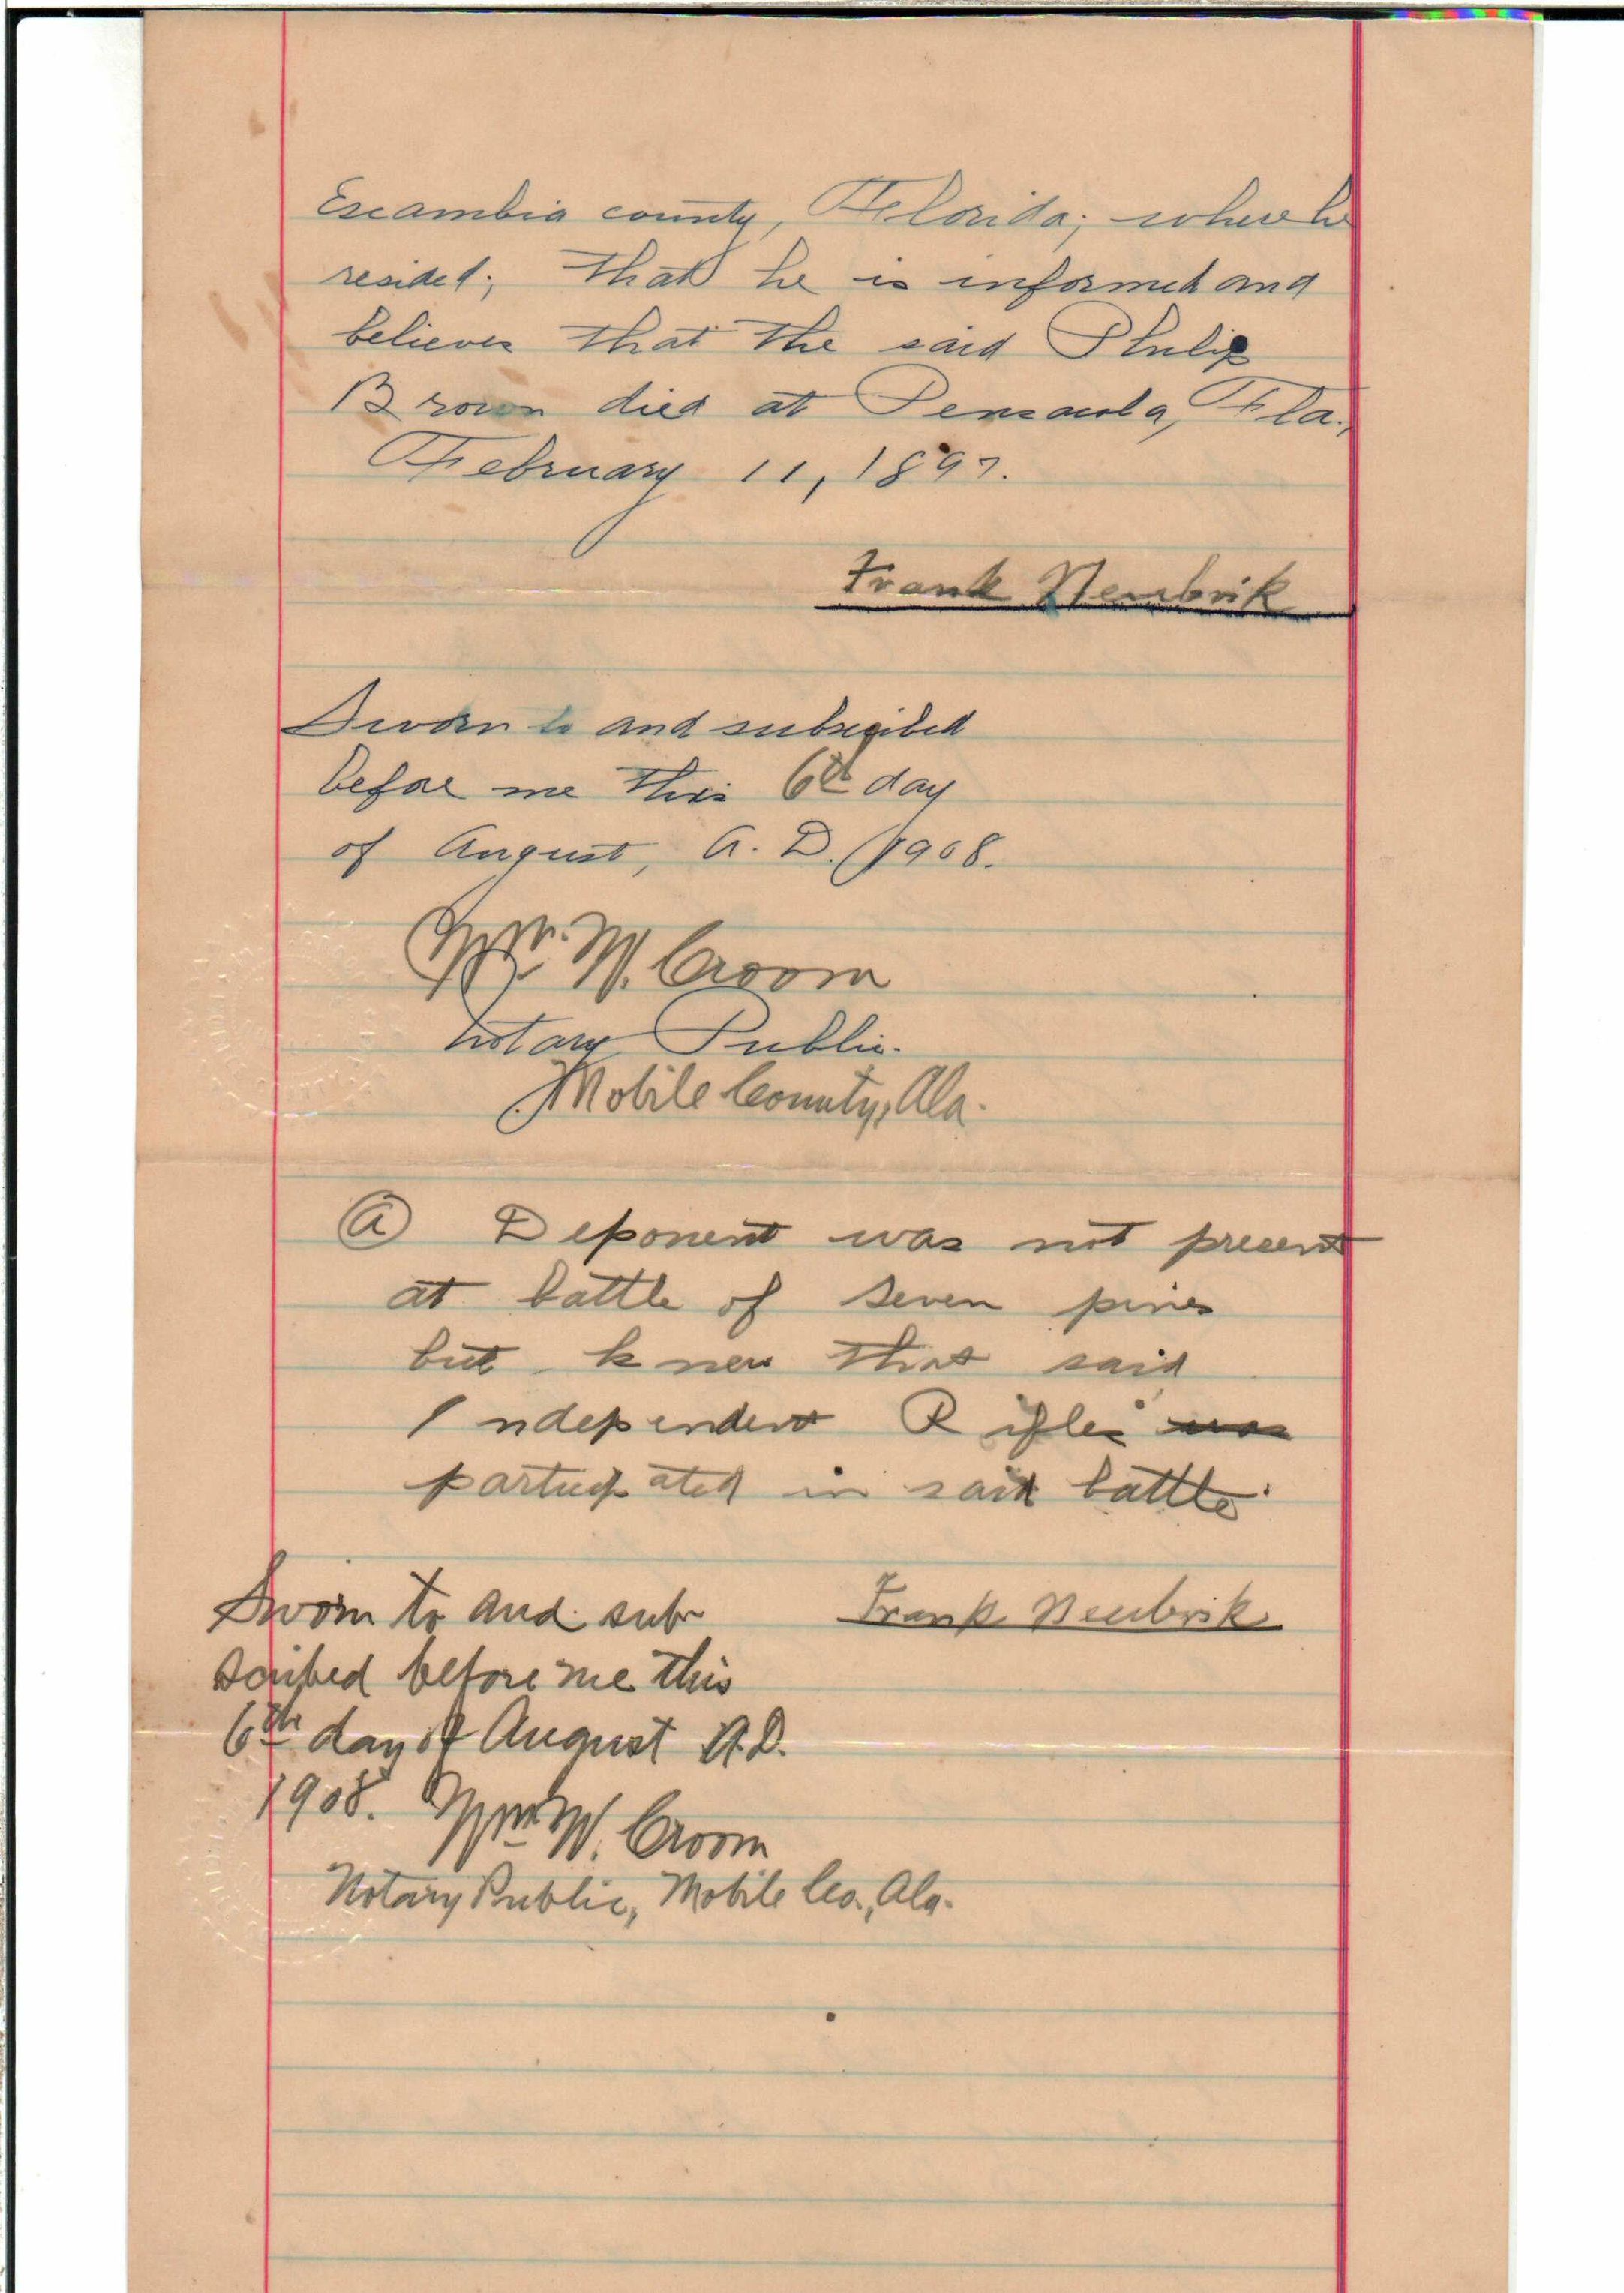 Escambia county, Florida; where he
resided; that he is informed and
believes that the said Philip
Brown died at Pensacola, Fla.,
February 11, 1897.
Frank Neubrik
Sworn to and subscribed
before me this 6th day
of August, A. D. 1908.
Wm. W. Croom
Notary Public.
Mobile County, Ala.
(a) Deponent was not present
at battle of seven pines
but knew that said
Independent Rifles was
participated in said battle.
Sworn to and sub- Frank Neubrik
scribed before me this
6th day of August A.D.
1908. Wm W. Croom
Notary Public, Mobile Co., Ala.